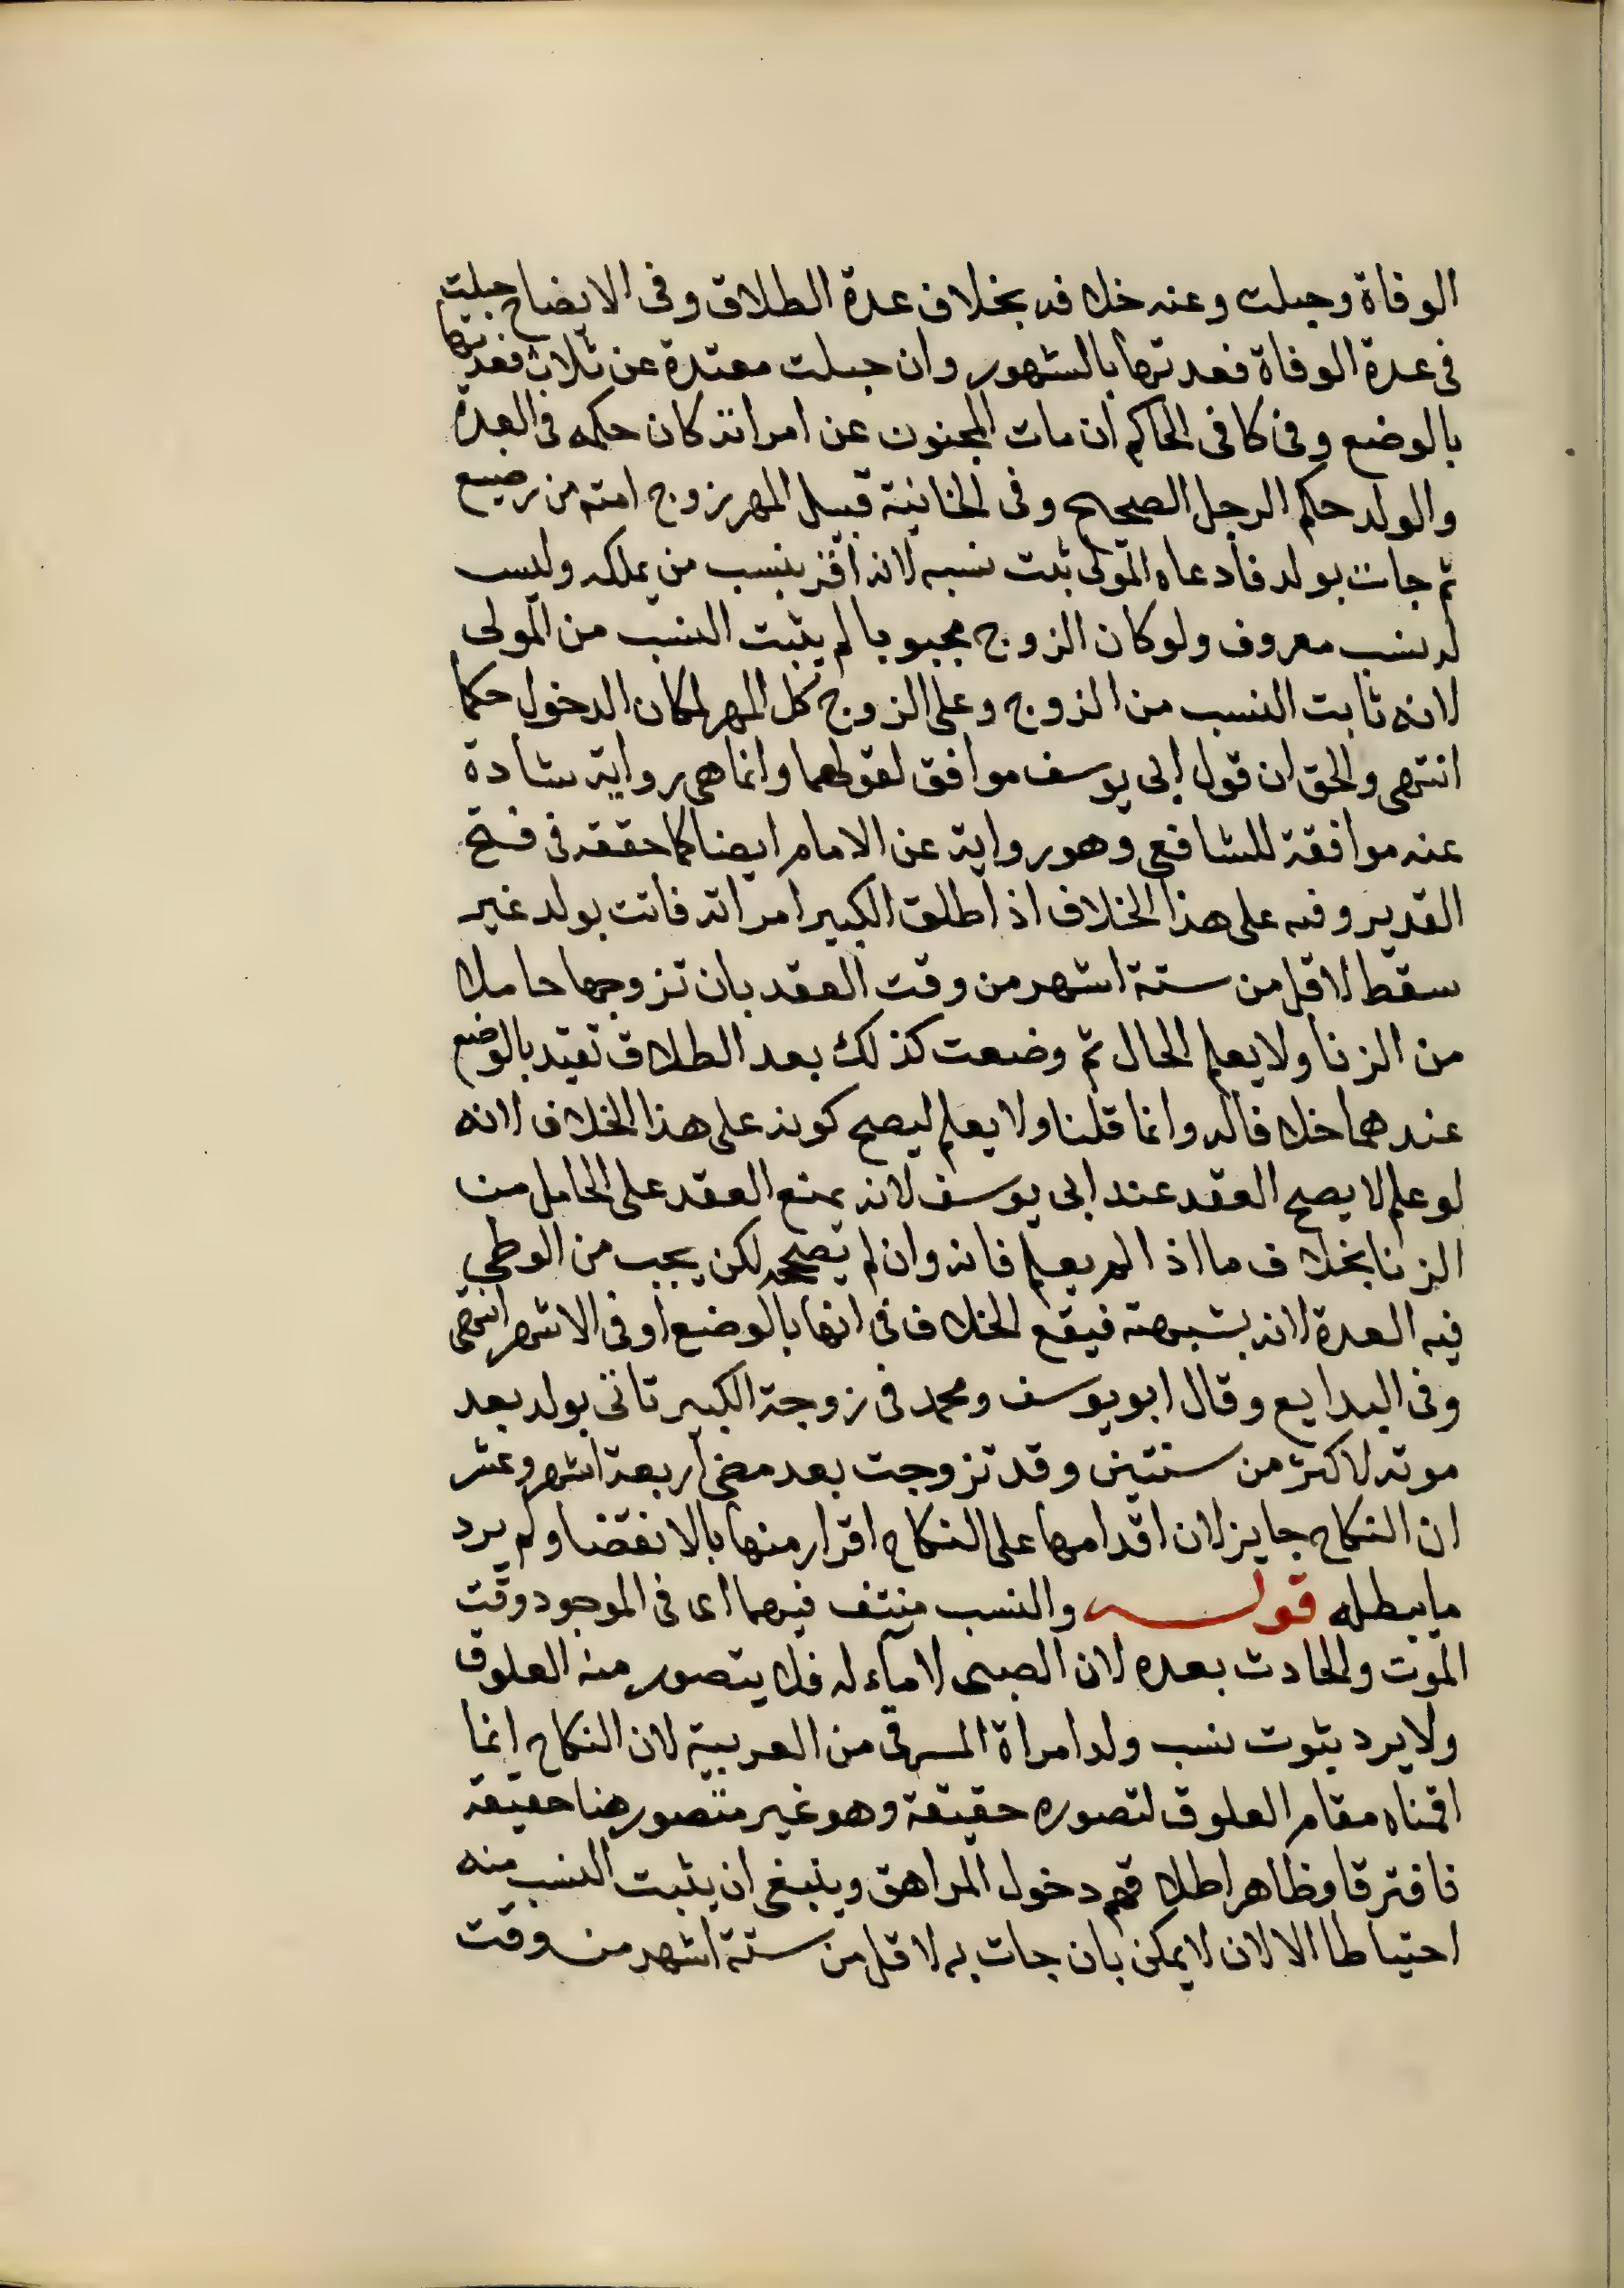 الوفاة وحبلت وعنه خلافه بخلاف عدة الطلاق وفى الايضاح حبلت
فى عدة الوفاة فعدتها بالشهور وان حبلت معتدة عن ثلاث فعدتها
بالوضع وفى كافى الحاكم ان مات المجنون عن امراته كان حكمه فى العدة
والولد حكم الرجل الصحيح وفى الخانية قبيل المهر زوج امته من رضيع
ثم جات بولد فادعاه المولى ثبت نسبه لانه اقر بنسب من يملكه وليس
له نسب معروف ولو كان الزوج مجبوبا لم يثبت النسب من المولى
لانه ثابت النسب من الزوج وعلى الزوج كل المهر لمكان الدخول حكما
انتهى والحق ان قول ابى يوسف موافق لقولهما وانما هى رواية شادة
عنه موافقة للشافعى وهو رواية عن الامام ايضا كما حققه فى فتح
القدير وفيه على هذا الخلاف اذا طلق الكبير امراته فاتت بولد غير
سقط لاقل من ستة اشهر من وقت العقد بان تزوجها حاملا
من الزنا ولا يعلم الحال ثم وضعت كذلك بعد الطلاق تعتد بالوضع
عندهما خلافا له وانما قلنا ولا يعلم ليصح كونه على هذا الخلاف لانه
لو علم لا يصح العقد عند ابى يوسف لانه يمنع العقد على الحامل من
الزنا بخلاف ما اذا لم يعلم فانه وان لم يصح لكن يجب من الوطى
فيه العدة لانه بشبهة فيقع الخلاف فى انها بالوضع او فى الاشهر انتهى
وفى البدايع وقال ابو يوسف ومحمد فى زوجة الكبير تاتى بولد بعد
موته لاكثر من سنتين وقد تزوجت بعد مضى اربعة اشهر وعشر
ان النكاح جايز لان اقدامها على النكاح اقرار منها بالانقضا ولم يرد
ما يبطله قوله والنسب منتف فيهما اى فى الموجود وقت
الموت والحادث بعده لان الصبى لا مآء له فلا يتصور منه العلوق
ولا يرد ثبوت نسب ولد امراة المسرقى من العربية لان النكاح انما
اقمناه مقام العلوق لتصوره حقيقة وهو غير متصور هنا حقيقة
فافترقا وظاهر اطلاقهم دخول المراهق وينبغى ان يثبت النسب منه
احتياطا الا لان لا يمكن بان جات به لاقل من ستة اشهر من وقت